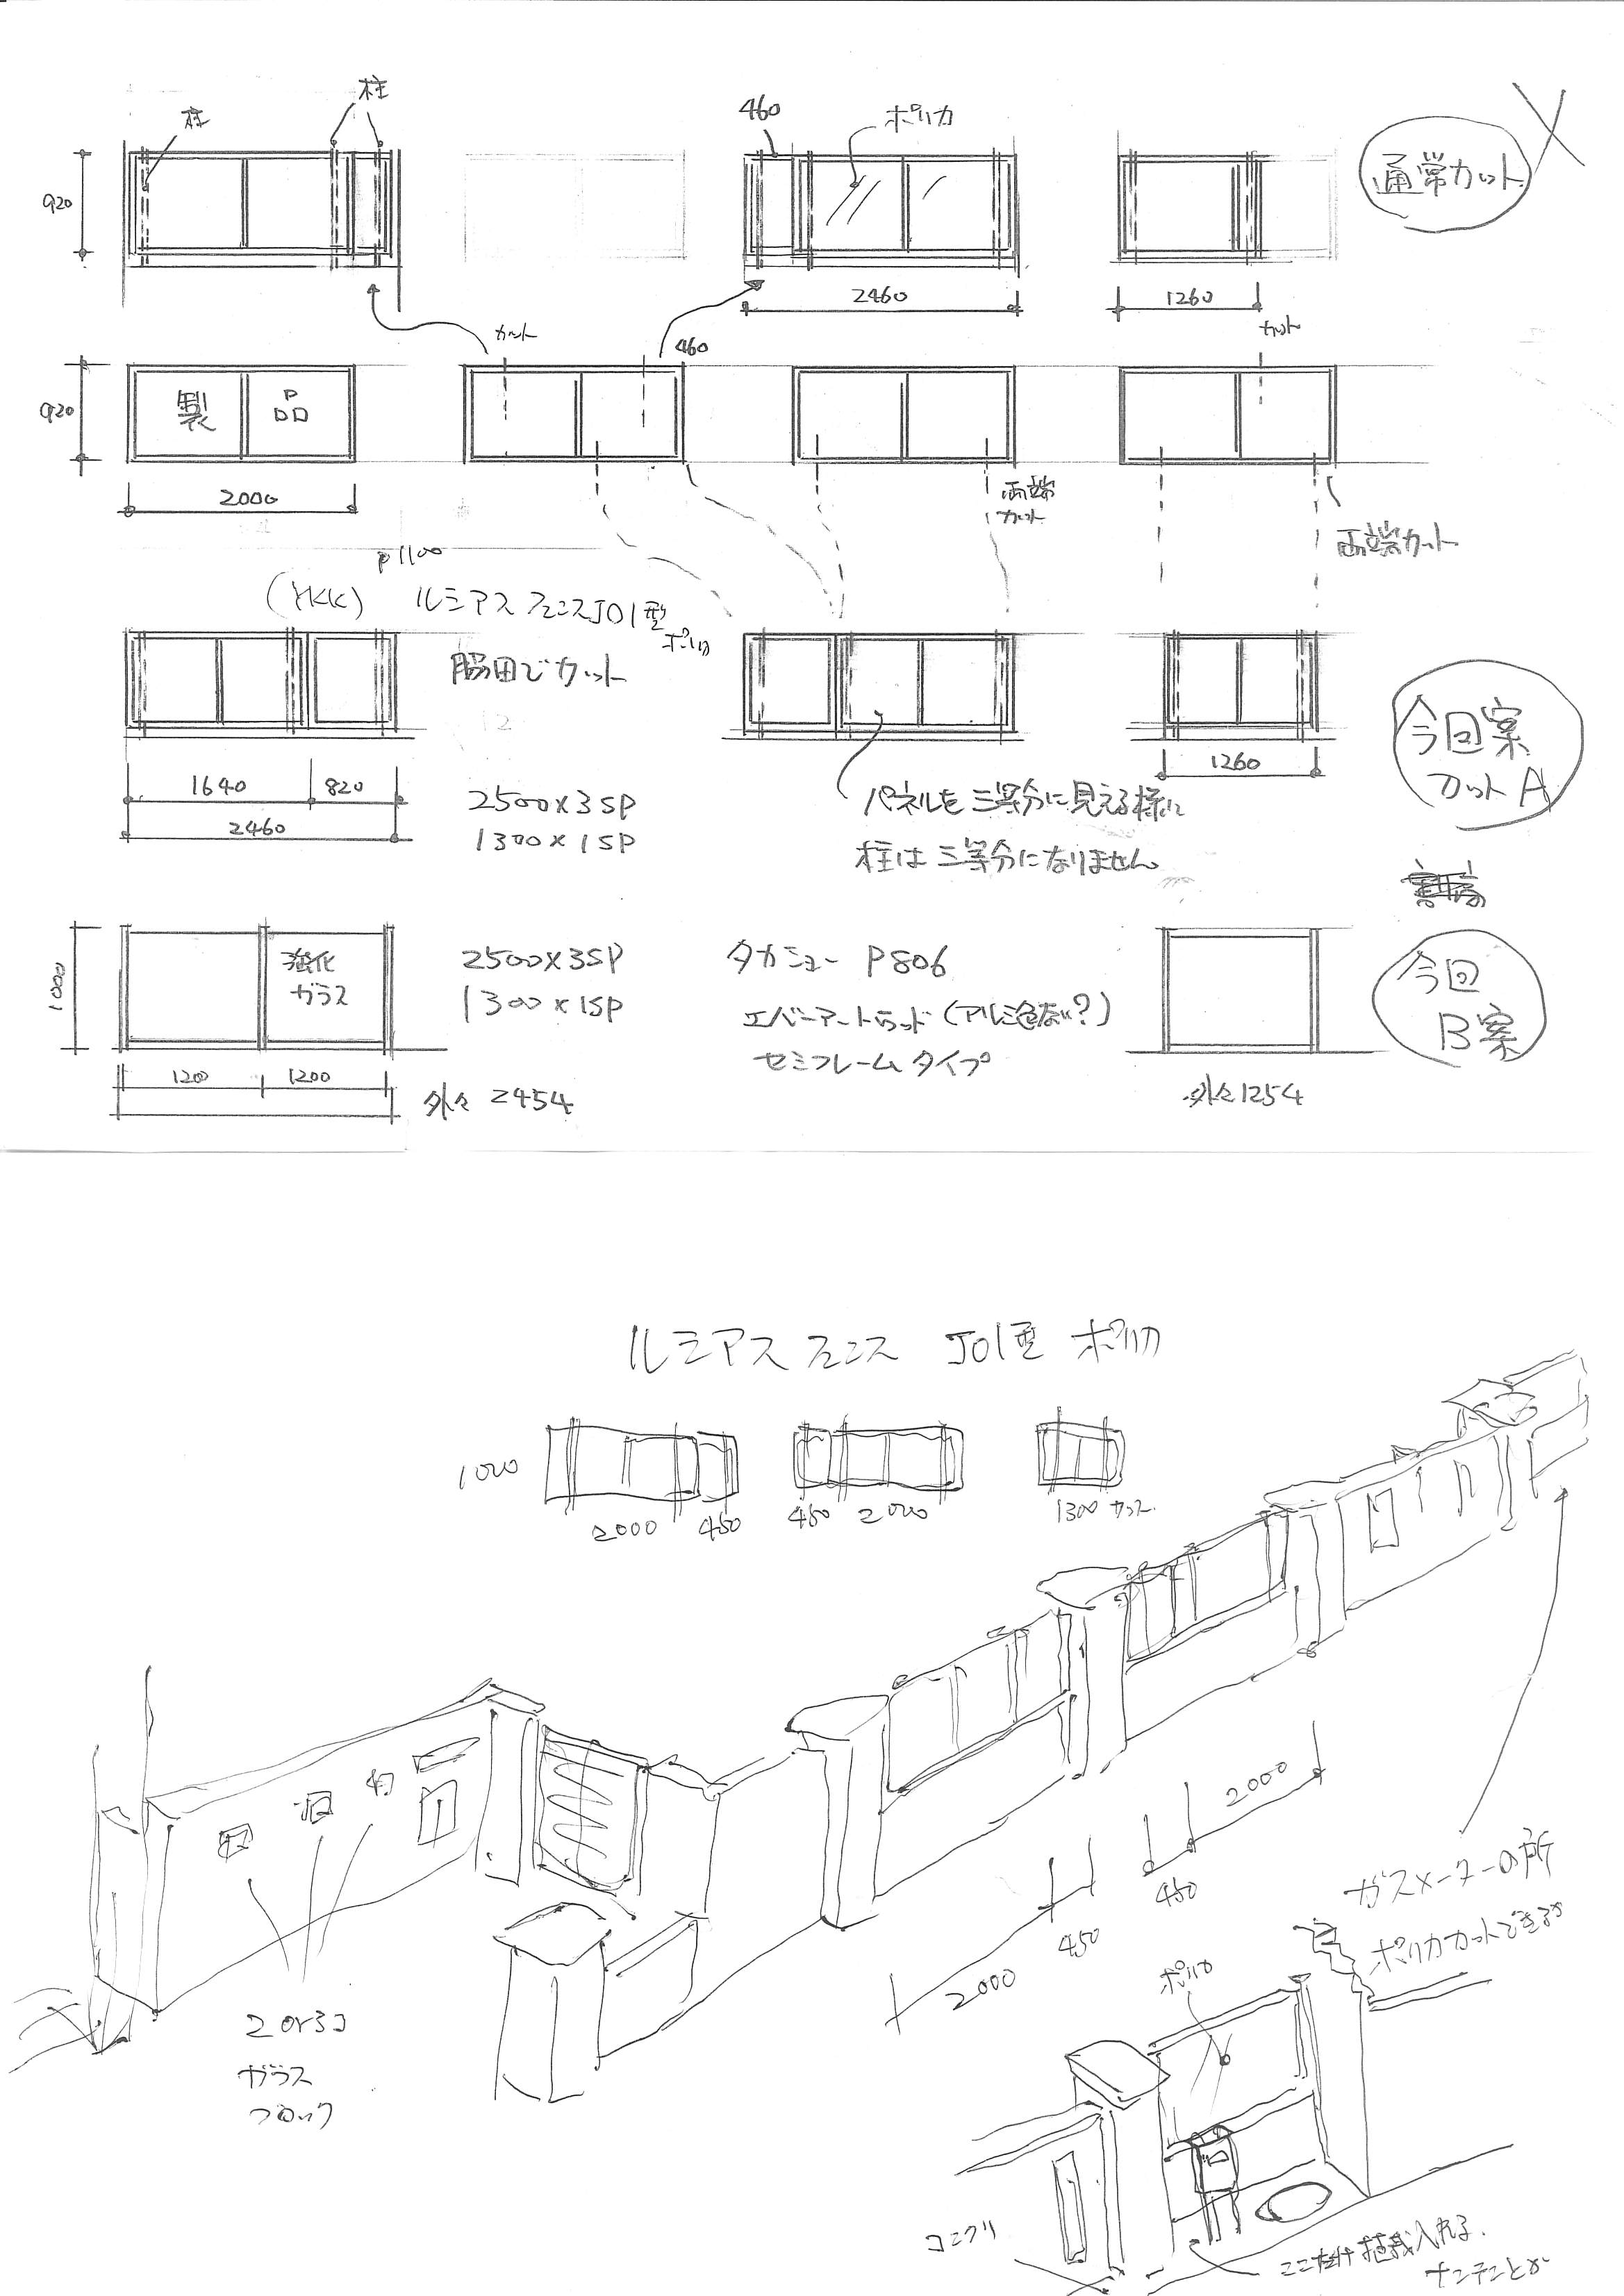 柱
柱
460
ポリカ
通常カット
920
2460
1260
カット
460
カット
920
製品
2000
両端
カット
両端カット
P1100
(YKK) ルミアスフェンスJ01型
ポリカ
脇田でカット
今回案
カットA
1640
820
2460
1260
2500×3SP
1300×1SP
パネルを三等分に見える様に
柱は三等分になりません
強化
ガラス
1000
2500×3SP
1300×1SP
タカショー P806
エバーアートウッド(アルミ色ない?)
セミフレームタイプ
今回
B案
1200
1200
外々 2454
外々1254
ルミアスフェンス J01型 ポリカ
1000
2000
450
450
2000
1300 カット
2000
450
450
2000
ガスメーターの所
ポリカカットできるか
ポリカ
2or3コ
ガラス
ブロック
コニクリ
ここだけ植栽入れる
ナンテンとか